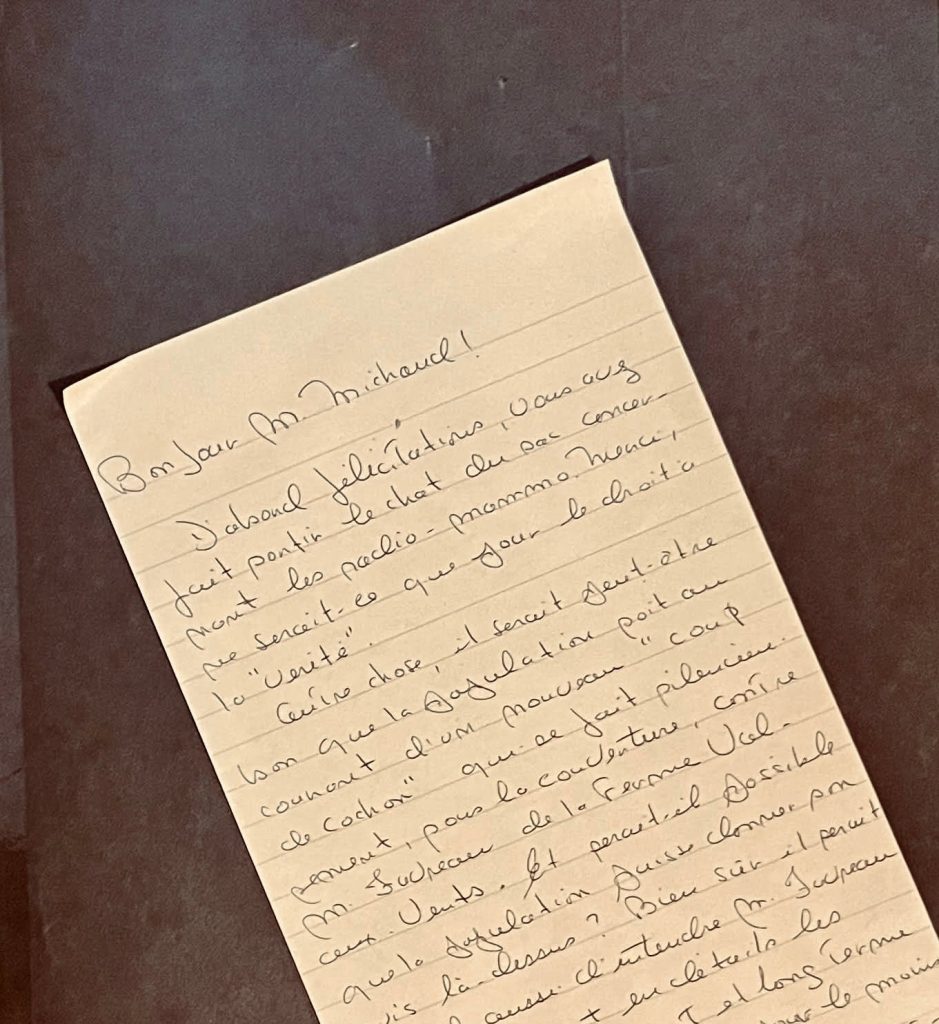 Bonjour M. Michaud!
D'abord félicitations, vous avez
fait sortir le chat du sac concer-
nant les radio-mammo. Merci,
ne serait-ce que pour le droit à
la "vérité".
Autre chose, il serait peut-être
bon que la population soit au
courant d'un nouveau "coup
de cochon" qui se fait silencieu-
sement, sous la couverture, contre
M. de la Ferme Val-
aux-Vents. Et serait-il possible
que la population puisse donner son
là-dessus? Bien sûr il serait
aussi d'entendre M.
en détails les
et long terme
le moins